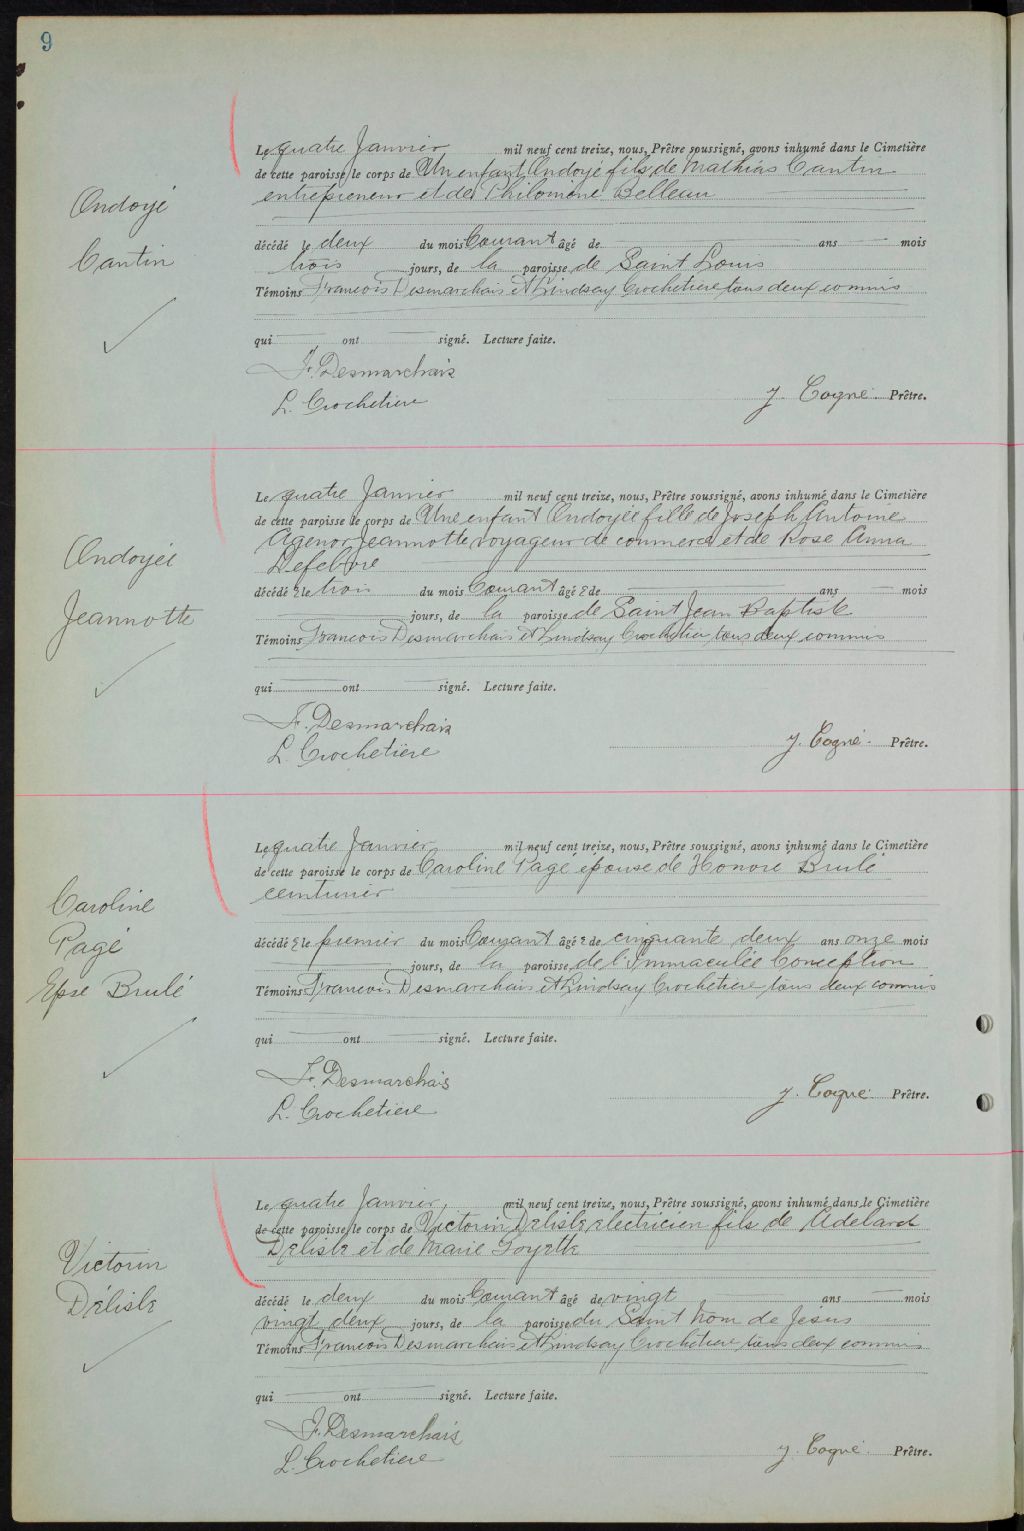 9
Le quatre Janvier mil neuf cent treize, nous, Prêtre soussigné, avons inhumé dans le Cimetière
de cette paroisse le corps de Un enfant Ondoyé fils de Mathias Cantin
entrepreneur et de Philomène Belleau
Ondoyé
Cantin
décédé le deux du mois Courant âgé de ans mois
trois jours, de la paroisse de Saint Louis
Témoins Francois Desmarchais et Lindsay Crochetiere tous deux commis
qui ont signé. Lecture faite.
F. Desmarchais
L. Crochetiere
J. Cogné Prêtre.
Le quatre Janvier mil neuf cent treize, nous, Prêtre soussigné, avons inhumé dans le Cimetière
de cette paroisse le corps de Une enfant Ondoyée fille de Joseph Antoine
Agenor Jeannotte voyageur de commerce et de Rose Anna
Lefebvre
Ondoyée
Jeannotte
décédée le trois du mois Courant âgée de ans mois
jours, de la paroisse de Saint Jean Baptiste
Témoins Francois Desmarchais et Lindsay Crochetiere tous deux commis
qui ont signé. Lecture faite.
F. Desmarchais
L. Crochetiere
J. Cogné Prêtre.
Le quatre Janvier mil neuf cent treize, nous, Prêtre soussigné, avons inhumé dans le Cimetière
de cette paroisse le corps de Caroline Pagé épouse de Honore Brulé
Caroline
Pagé
Epse Brulé
décédée le premier du mois Courant âgée de cinquante deux ans onze mois
jours, de la paroisse de l'Immaculée Conception
Témoins Francois Desmarchais et Lindsay Crochetiere tous deux commis
qui ont signé. Lecture faite.
F. Desmarchais
L. Crochetiere
J. Cogné Prêtre.
Le quatre Janvier mil neuf cent treize, nous, Prêtre soussigné, avons inhumé dans le Cimetière
de cette paroisse le corps de Victorin Délisle electricien fils de Adelard
Délisle et de Marie Goyette
Victorin
Délisle
décédé le deux du mois Courant âgé de vingt ans mois
vingt deux jours, de la paroisse du Saint Nom de Jésus
Témoins Francois Desmarchais et Lindsay Crochetiere tous deux commis
qui ont signé. Lecture faite.
F. Desmarchais
L. Crochetiere
J. Cogné Prêtre.